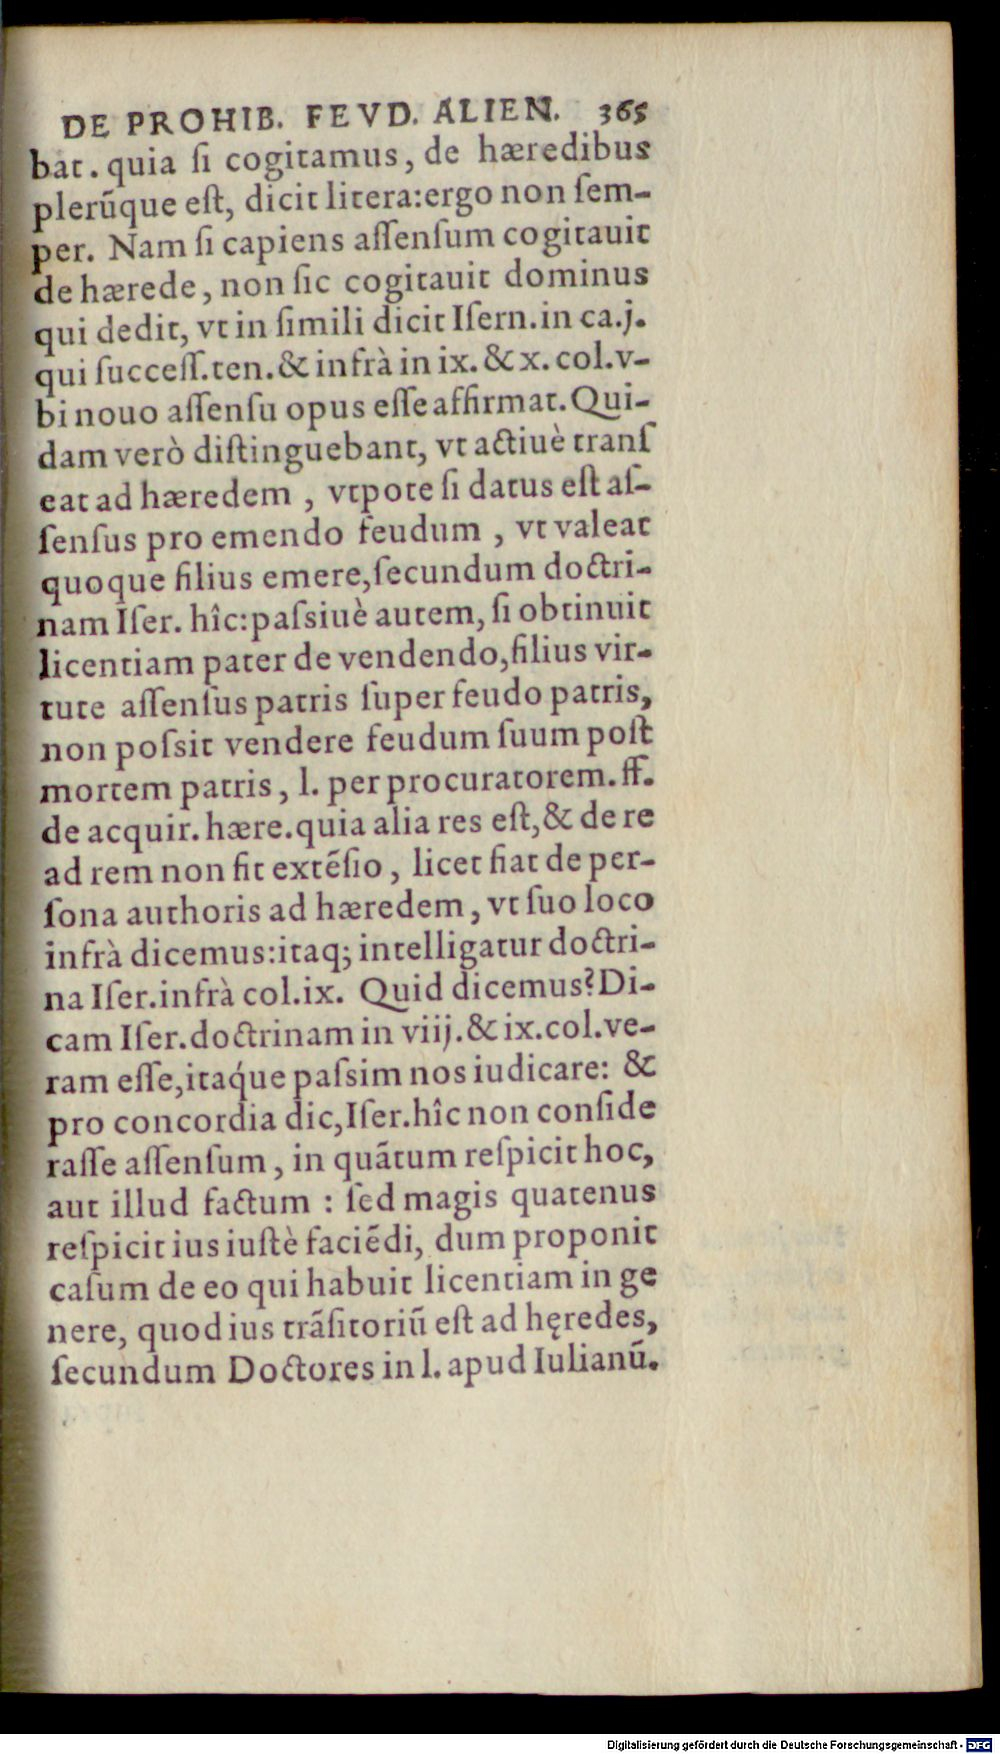 DE PROHIB. FEVD. ALIEN. 365
bat. quia ſi cogitamus, de hæredibus
plerũque eſt, dicit litera:ergo non ſem-
per. Nam ſi capiens aſſenſum cogitauit
de hærede, non ſic cogitauit dominus
qui dedit, vt in ſimili dicit Iſern. in ca. j.
qui ſucceſſ. ten. & infrà in ix. & x. col. v-
bi nouo aſſenſu opus eſſe affirmat. Qui-
dam verò diſtinguebant, vt actiuè tranſ
eat ad hæredem, vtpote ſi datus eſt aſ-
ſenſus pro emendo feudum, vt valeat
quoque filius emere, ſecundum doctri-
nam Iſer. hîc: paſsiuè autem, ſi obtinuit
licentiam pater de vendendo, filius vir-
tute aſſenſus patris ſuper feudo patris,
non poſsit vendere feudum ſuum poſt
mortem patris, l. per procuratorem. ff.
de acquir. hære. quia alia res eſt, & de re
ad rem non fit extẽſio, licet fiat de per-
ſona authoris ad hæredem, vt ſuo loco
infrà dicemus: itaq; intelligatur doctri-
na Iſer. infrà col. ix. Quid dicemus? Di-
cam Iſer. doctrinam in viij. & ix. col. ve-
ram eſſe, itaq́ue paſsim nos iudicare: &
pro concordia dic, Iſer. hîc non conſide
raſſe aſſenſum, in quãtum reſpicit hoc,
aut illud factum : ſed magis quatenus
reſpicit ius iuſtè faciẽdi, dum proponit
caſum de eo qui habuit licentiam in ge
nere, quod ius trãſitoriũ eſt ad hęredes,
ſecundum Doctores in l. apud Iulianũ.
Digitalisierung gefördert durch die Deutsche Forschungsgemeinschaft - DFG